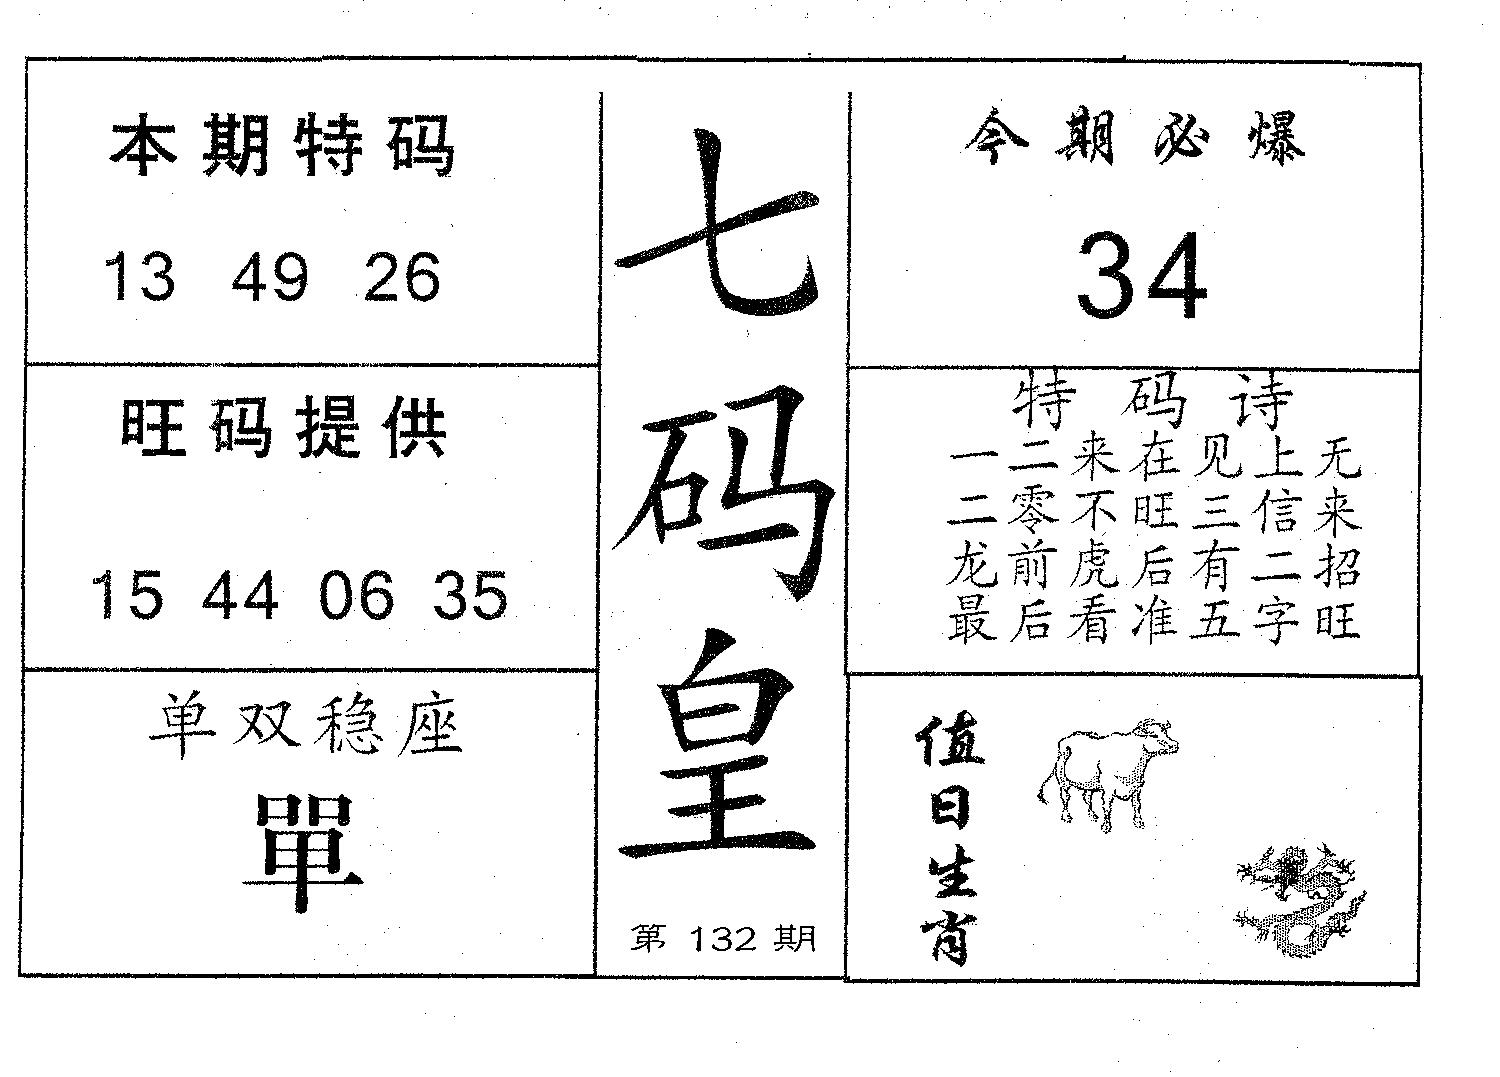 本期特码
13 49 26
旺码提供
15 44 06 35
单双稳座
單
七码皇
第 132 期
今期必爆
34
特码诗
一二来在见上无
二零不旺三信来
龙前虎后有二招
最后看准五字旺
值日生肖